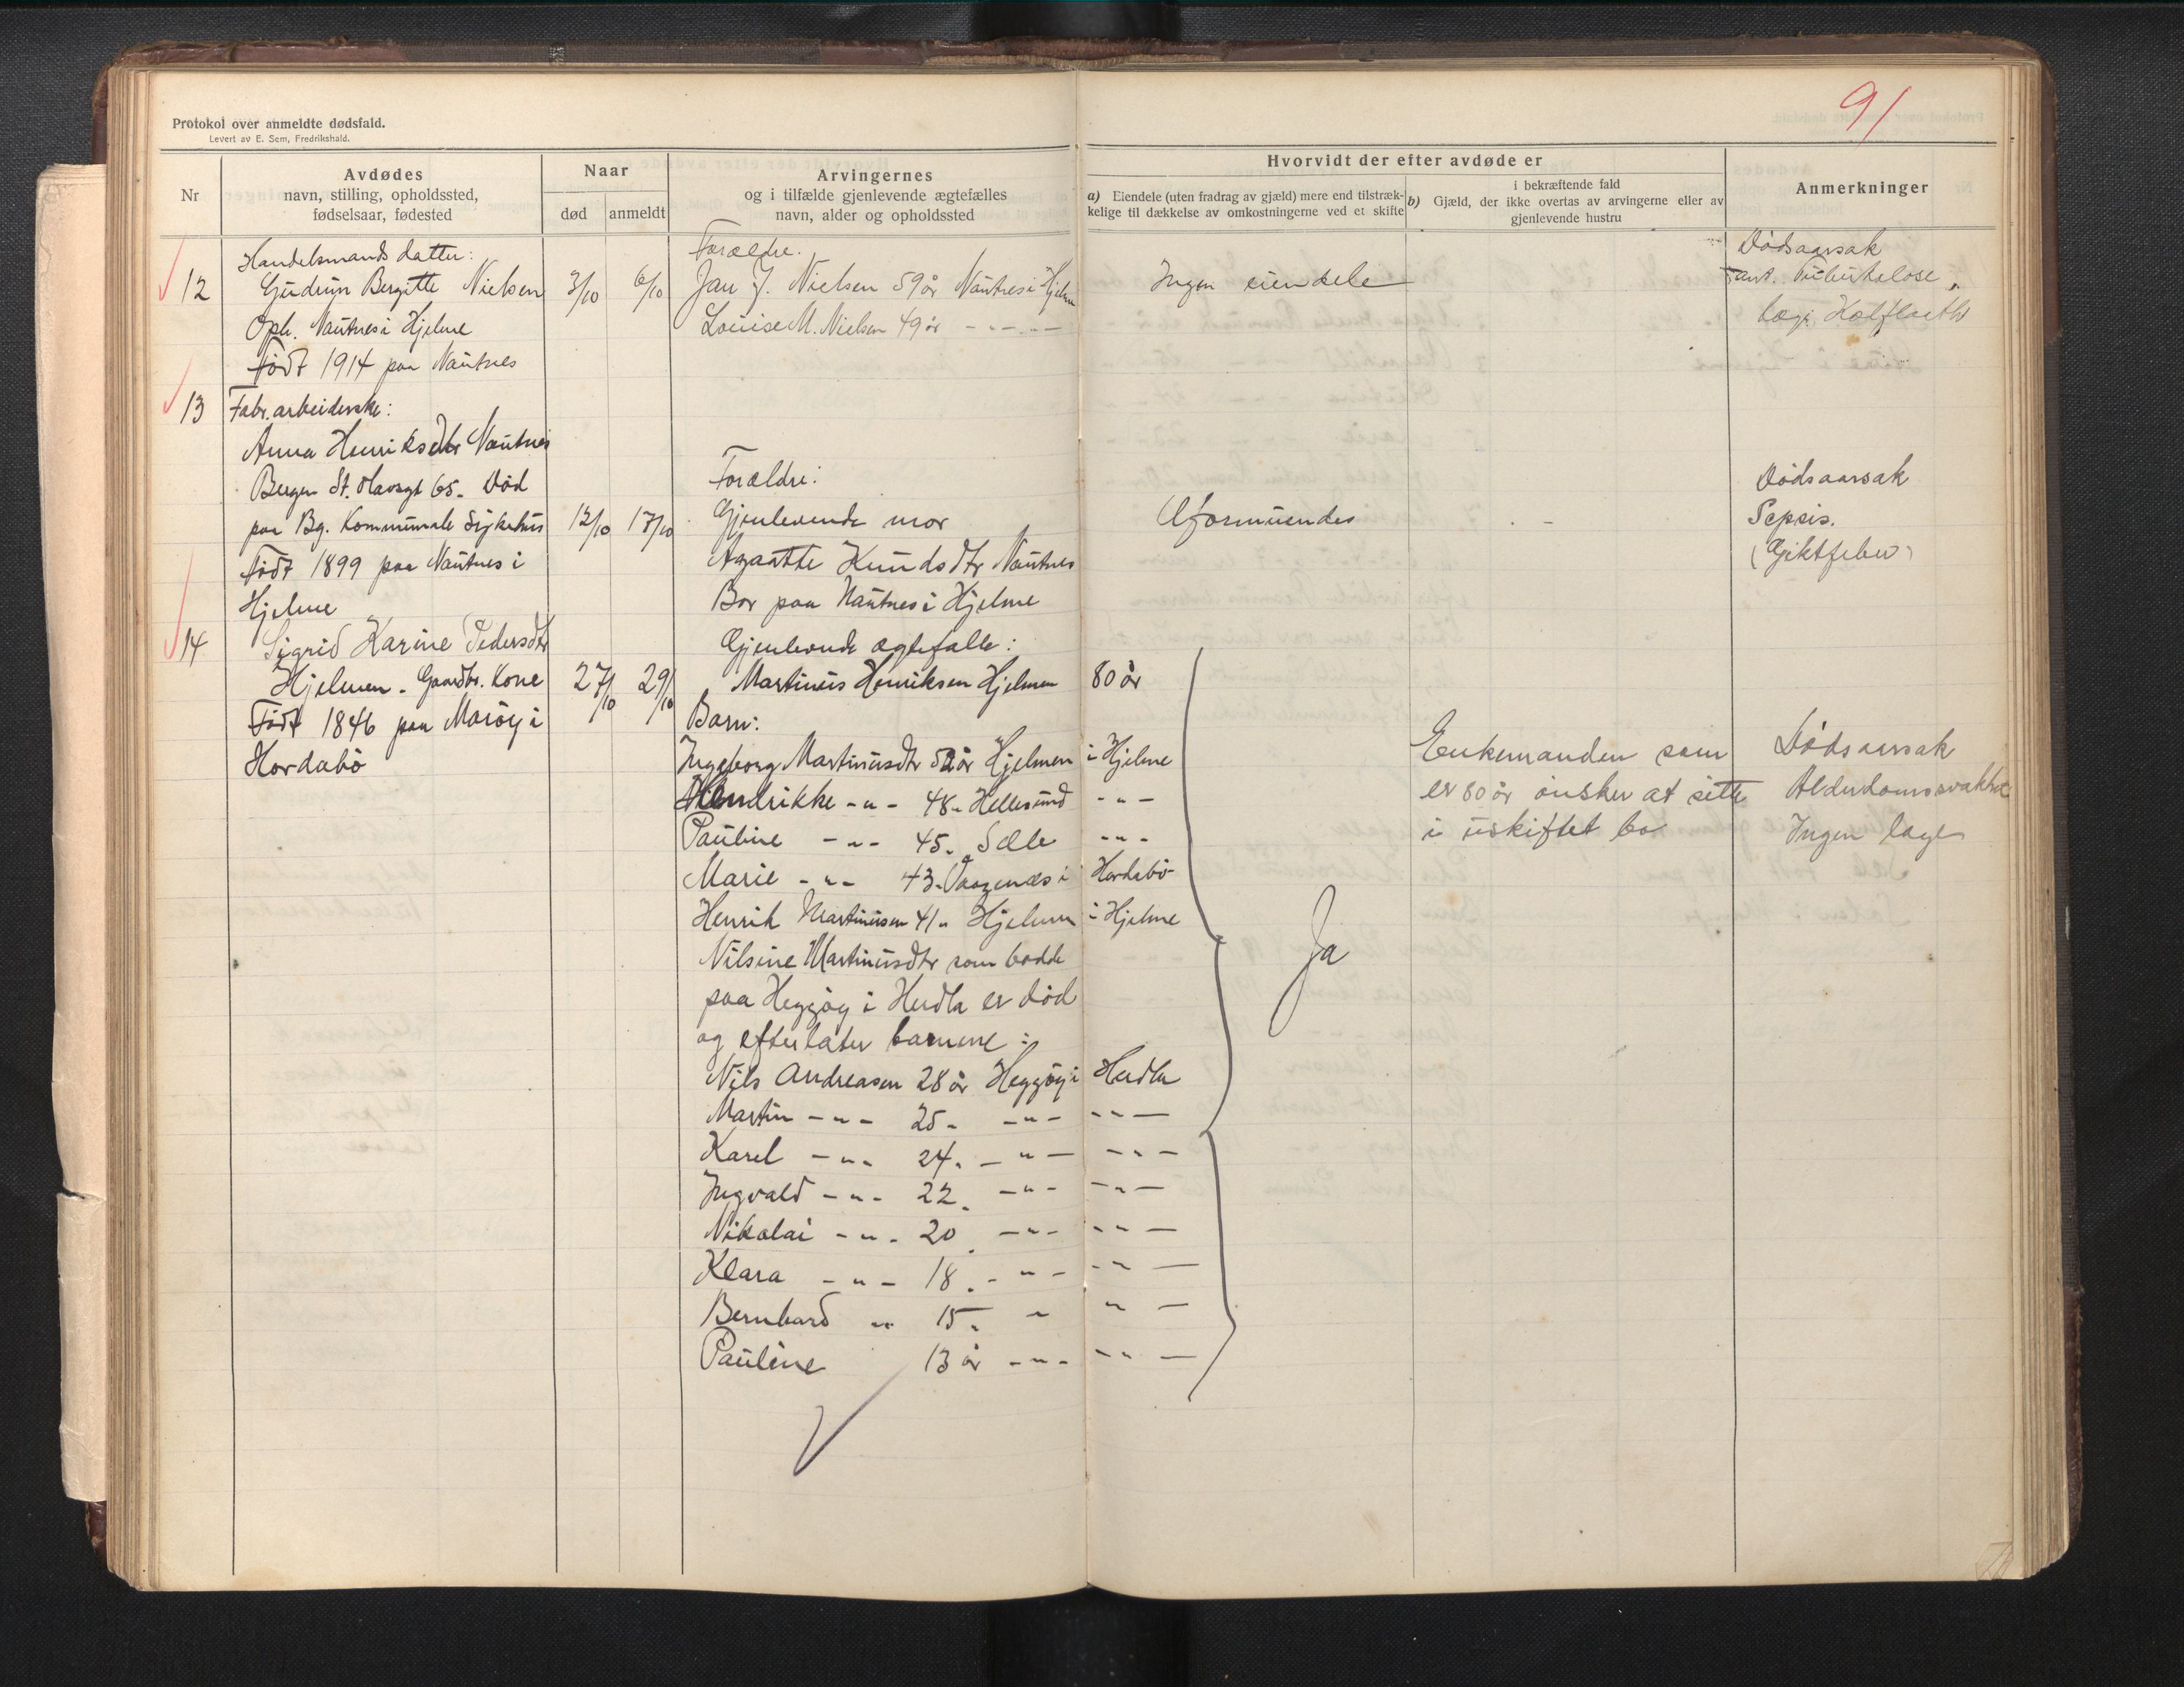 91
Protokol over anmeldte dødsfald.
Levert av E. Sem, Fredrikshald.
Nr
Avdødes
navn, stilling, opholdssted,
fødselsaar, fødested
Naar
død
anmeldt
Arvingernes
og i tilfælde gjenlevende ægtefælles
navn, alder og opholdssted
Hvorvidt der efter avdøde er
a) Eiendele (uten fradrag av gjæld) mere end tilstræk-
kelige til dækkelse av omkostningerne ved et skifte
i bekræftende fald
b) Gjæld, der ikke overtas av arvingerne eller av
gjenlevende hustru
Anmerkninger
12
Handelsmands datter:
Gudrun Bergitte Nielsen
Oph. Nautnes i Hjelme
Født 1914 paa Nautnes
3/10
6/10
Forældre.
Jan J. Nielsen 59 år Nautnes i Hjelme
Louise M. Nielsen 49 år - - - -
Ingen eiendele
Dødsaarsak
ant. Tuberkelose.
Læge Kolflaath
13
Fabr. arbeiderske:
Anna Henriksdtr Nautnes
Bergen St. Olavsgt 65. Død
paa Bg. Kommunale Sykehus
Født 1899 paa Nautnes i
Hjelme
12/10
17/10
Forældre:
Gjenlevende mor
Agaatte Knudsdtr Nautnes
Bor paa Nautnes i Hjelme
Uformuendes
-
Dødsaarsak
Sepsis.
(Gjiktfeber)
14
Sigrid Karine Pedersdtr
Hjelmen - Gaardbr. Kone
Født 1846 paa Marøy i
Hordabø
27/10
29/10
Gjenlevende ægtefælle:
Martinus Henriksen Hjelmen 80 år
Barn:
Ingeborg Martinusdtr 52 år Hjelmen i Hjelme
Hendrikke - " - 48 " Hellesund - " -
Pauline - " - 45 " Sæle - " -
Marie - " - 43 " i Hordabø
Henrik Martinusen 41 " Hjelmen i Hjelme
Nilsine Martinusdtr som bodde
paa Heggøy i Herdla er død
og efterlater barnene:
Nils Andreasen 28 år Heggøy i Herdla
Martin - " - 25 " - " - - " -
Karel - " - 24 " - " - - " -
Ingvald - " - 22 " - " - - " -
Nikolai - " - 20 " - " - - " -
Klara - " - 18 " - " - - " -
Bernhard " 15 " " " -
Pauline 13 år - " - - " -
Ja
Enkemanden som
er 80 år ønsker at sitte
i uskiftet bo
Dødsaarsak
Alderdomssvakhet
Ingen læge